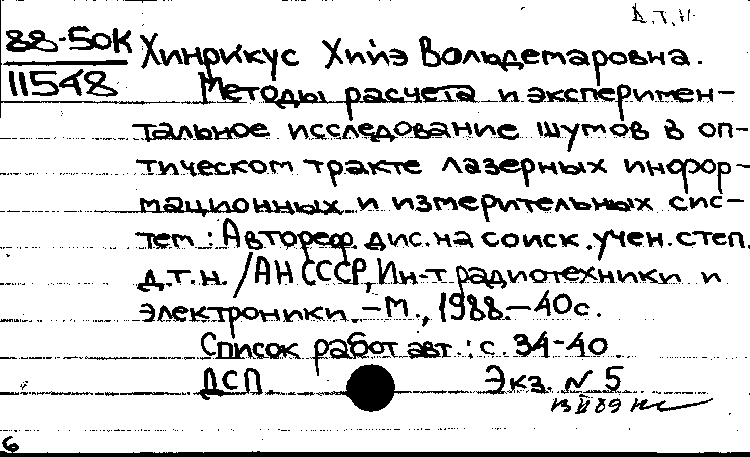 д.т.н.
88-50К
11548
Хинрикус Хийэ Вольдемаровна.
Методы расчета и эксперимен-
тальное исследование шумов в оп-
тическом тракте лазерных инфор-
мационных и измерительных сис-
тем: Автореф. дис. на соиск. учен. степ.
д.т.н. /АН СССР, Ин-т радиотехники и
электроники. – М., 1988. – 40с.
Список работ авт.: с. 34-40.
ДСП. Экз. N 5
6